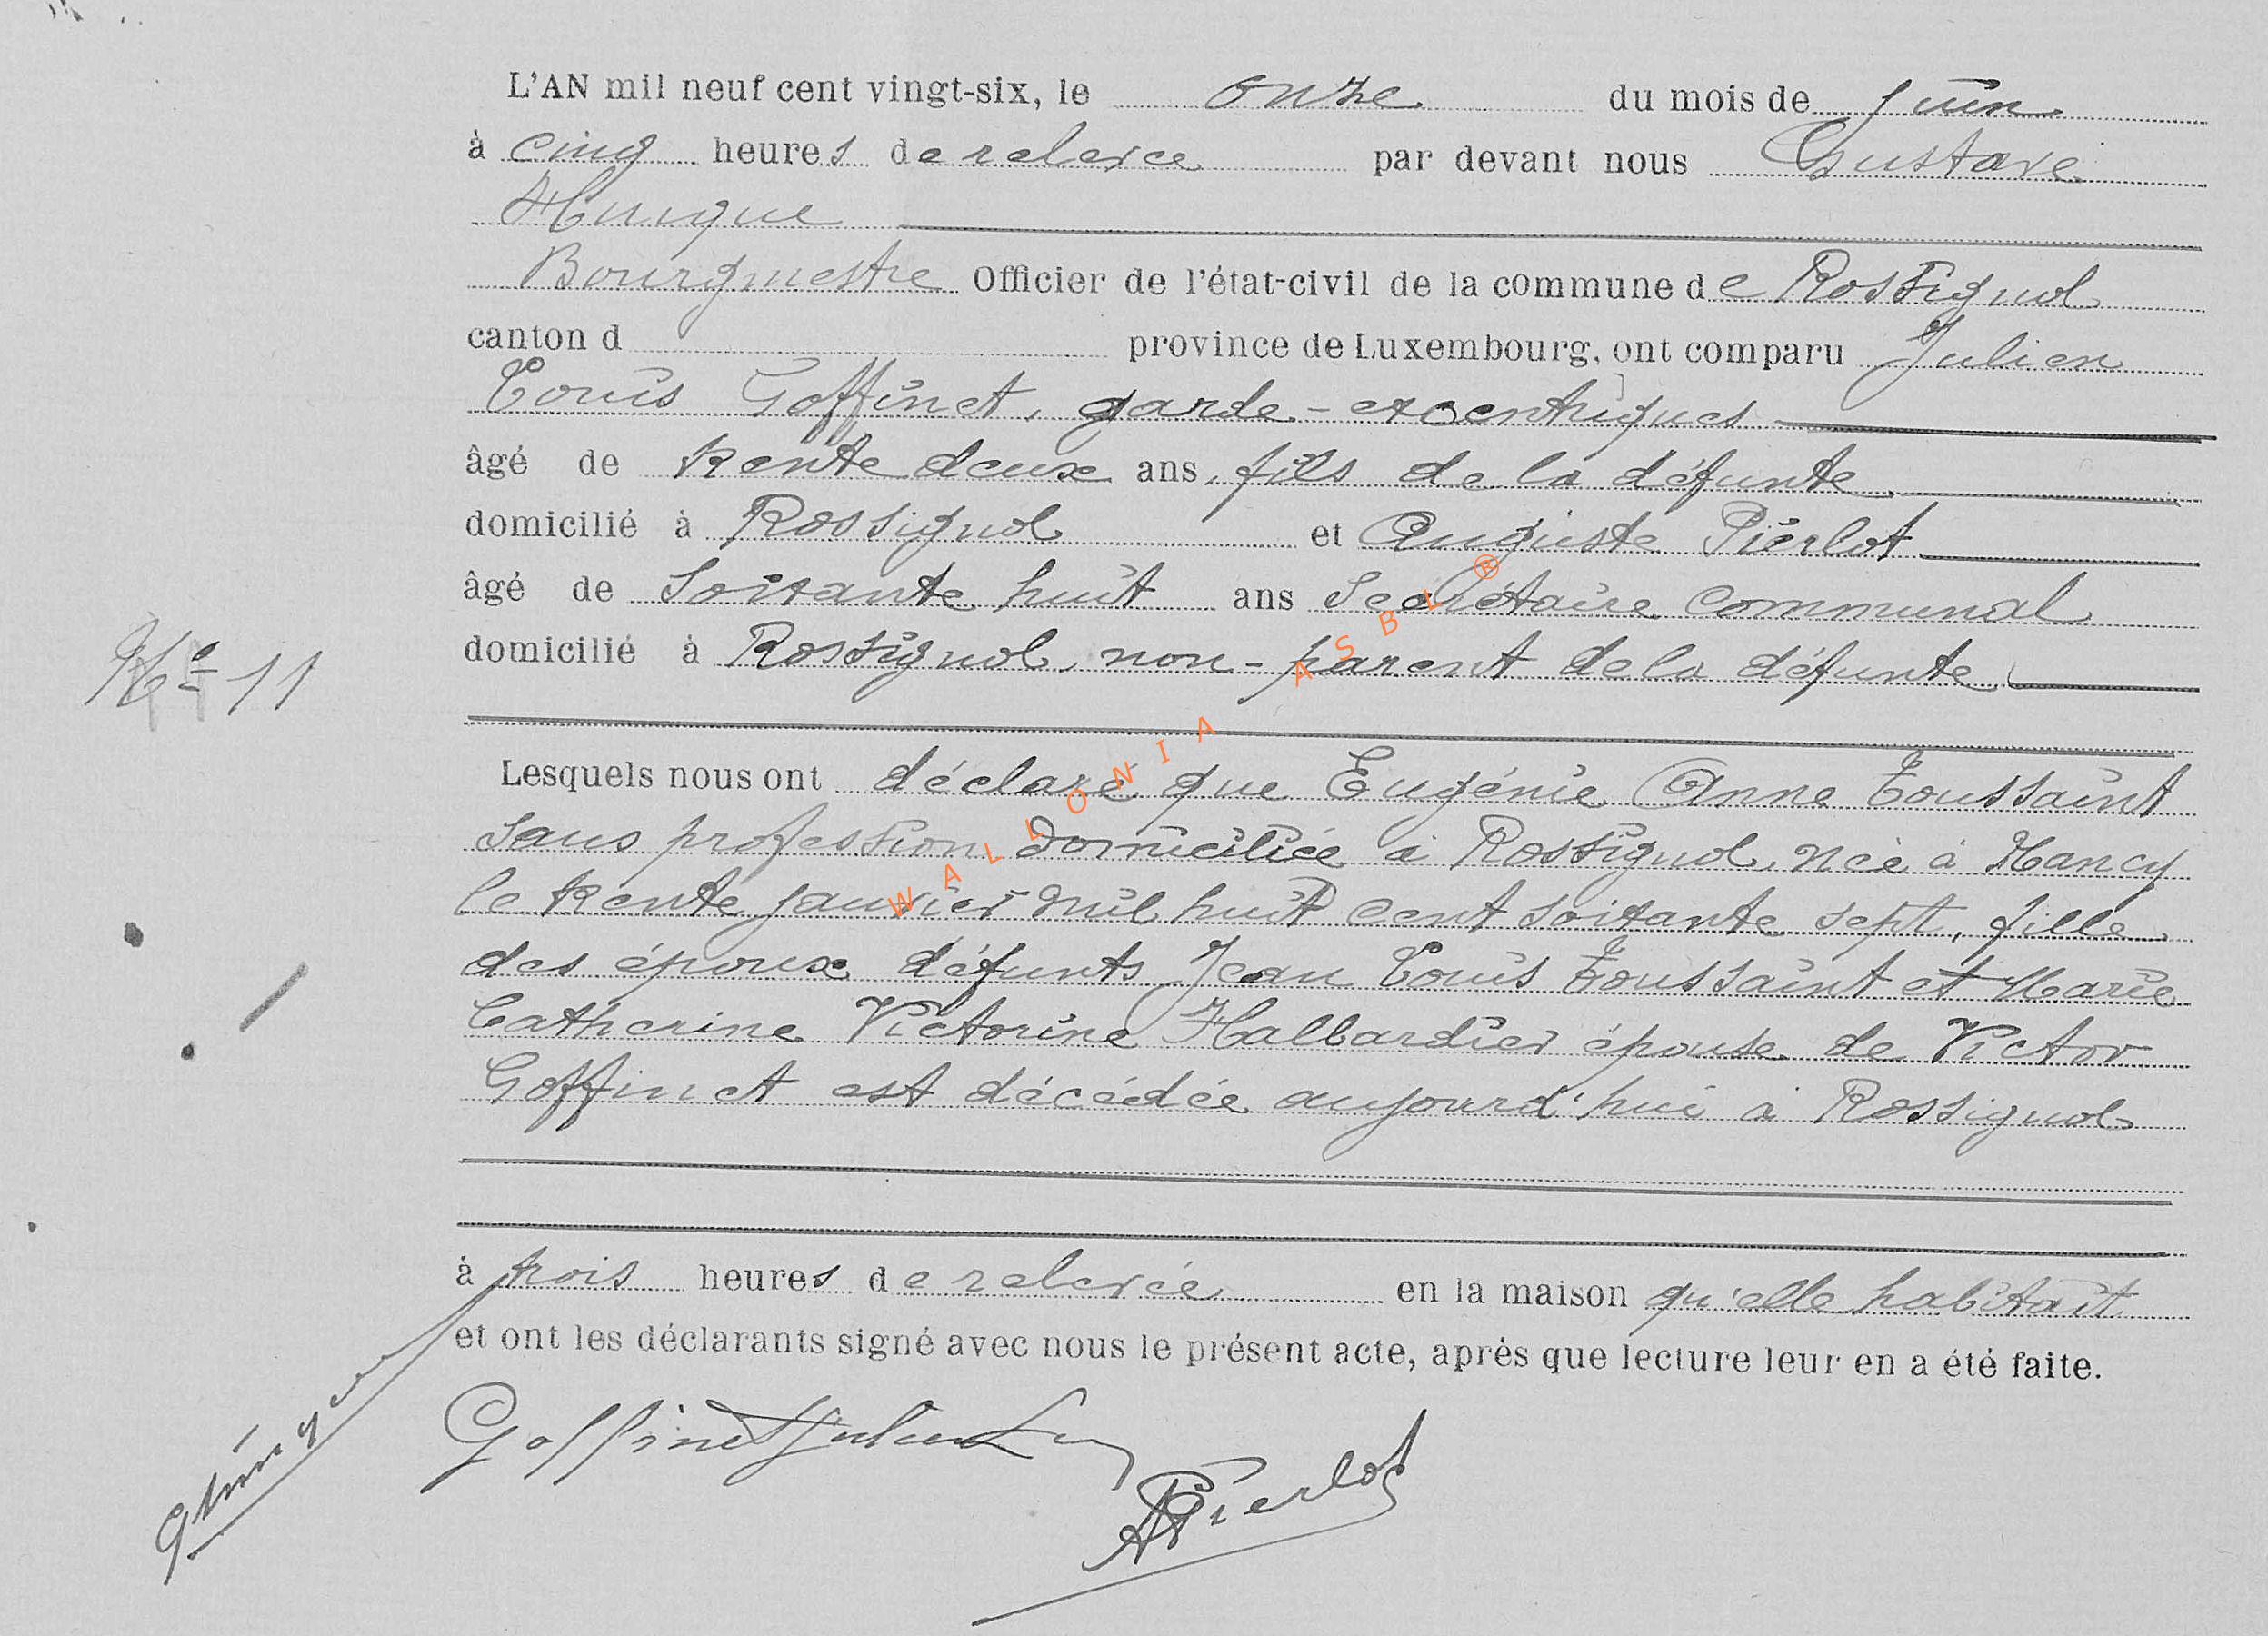 L'AN mil neuf cent vingt-six, le onze du mois de juin
à cinq heures de relevée par devant nous Gustave
Hurique
Bourgmestre Officier de l'état-civil de la commune de Rossignol
canton d province de Luxembourg, ont comparu Julien
Louis Goffinet, garde-excentriques
âgé de trente deux ans, fils de la défunte
domicilié à Rossignol et Auguste Pierlot
âgé de soixante huit ans Secrétaire communal
domicilié à Rossignol, non-parent de la défunte
N° 11
Lesquels nous ont déclaré que Eugénie Anne Toussaint
sans profession domiciliée à Rossignol, née à Hancy
le trente janvier mil huit cent soixante sept, fille
des époux défunts Jean Louis Toussaint et Marie
Catherine Victorine Hallbardier épouse de Victor
Goffinet est décédée aujourd'hui à Rossignol
à trois heures de relevée en la maison qu'elle habitait
et ont les déclarants signé avec nous le présent acte, après que lecture leur en a été faite.
Goffinet Julien
APierlot
WALLONIA ASBL ®